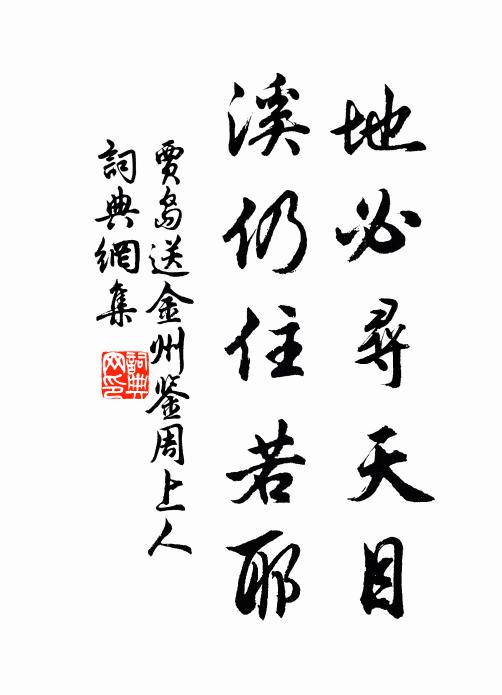 地必尋天目
溪仍住若耶
賈島送金州鉴周上人
詞典網集
詞典
网印